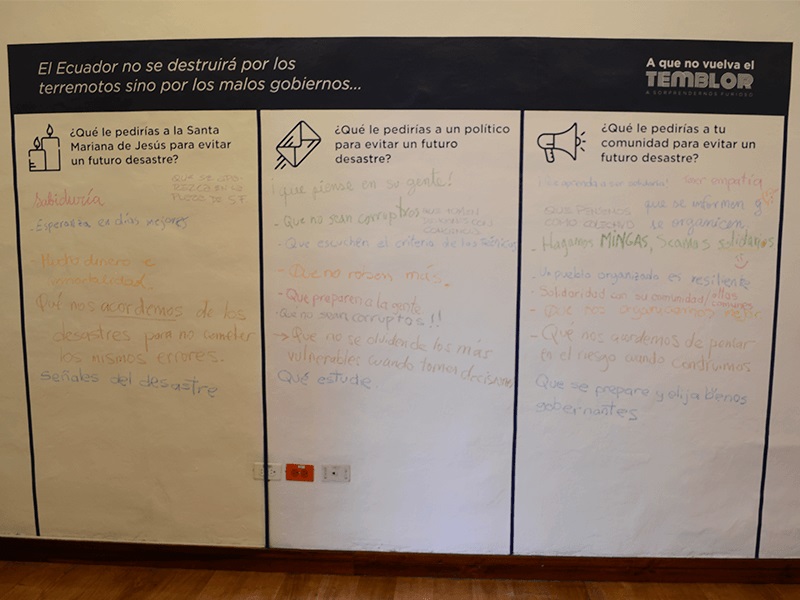 El Ecuador no se destruirá por los
terremotos sino por los malos gobiernos...
A que no vuelva el
TEMBLOR
A SORPRENDERNOS FURIOSO
¿Qué le pedirías a la Santa
Mariana de Jesús para evitar
un futuro desastre?
QUE SE
EN LA
Sabiduría
- Esperanza en días mejores
- Mucho dinero e
inmortalidad
Qué nos acordemos de los
desastres para no cometer
los mismos errores.
Señales del desastre
¿Qué le pedirías a un político
para evitar un futuro
desastre?
¡que piense en su gente!
- Que no sean corruptos
QUE TOMEN
- Que escuchen el criterio de los técnicos
- Que no roben más.
- Que preparen a la gente
- Que no sean corruptos!!
→ Que no se olviden de los más
vulnerables cuando toman decisiones
Qué estudie.
¿Qué le pedirías a tu
comunidad para evitar un
futuro desastre?
Ser empatía
que se informen y
se organicen
QUE PENSEMOS
COMO OBJETIVO
- Hagamos MINGAS, Seamos solidarios
- Un pueblo organizado es resiliente
- Solidaridad con su comunidad/ollas
comunes
- Que nos organicemos mejor
- Que nos acordemos de pensar
en el riesgo cuando construimos
Que se prepare y elija buenos
gobernantes